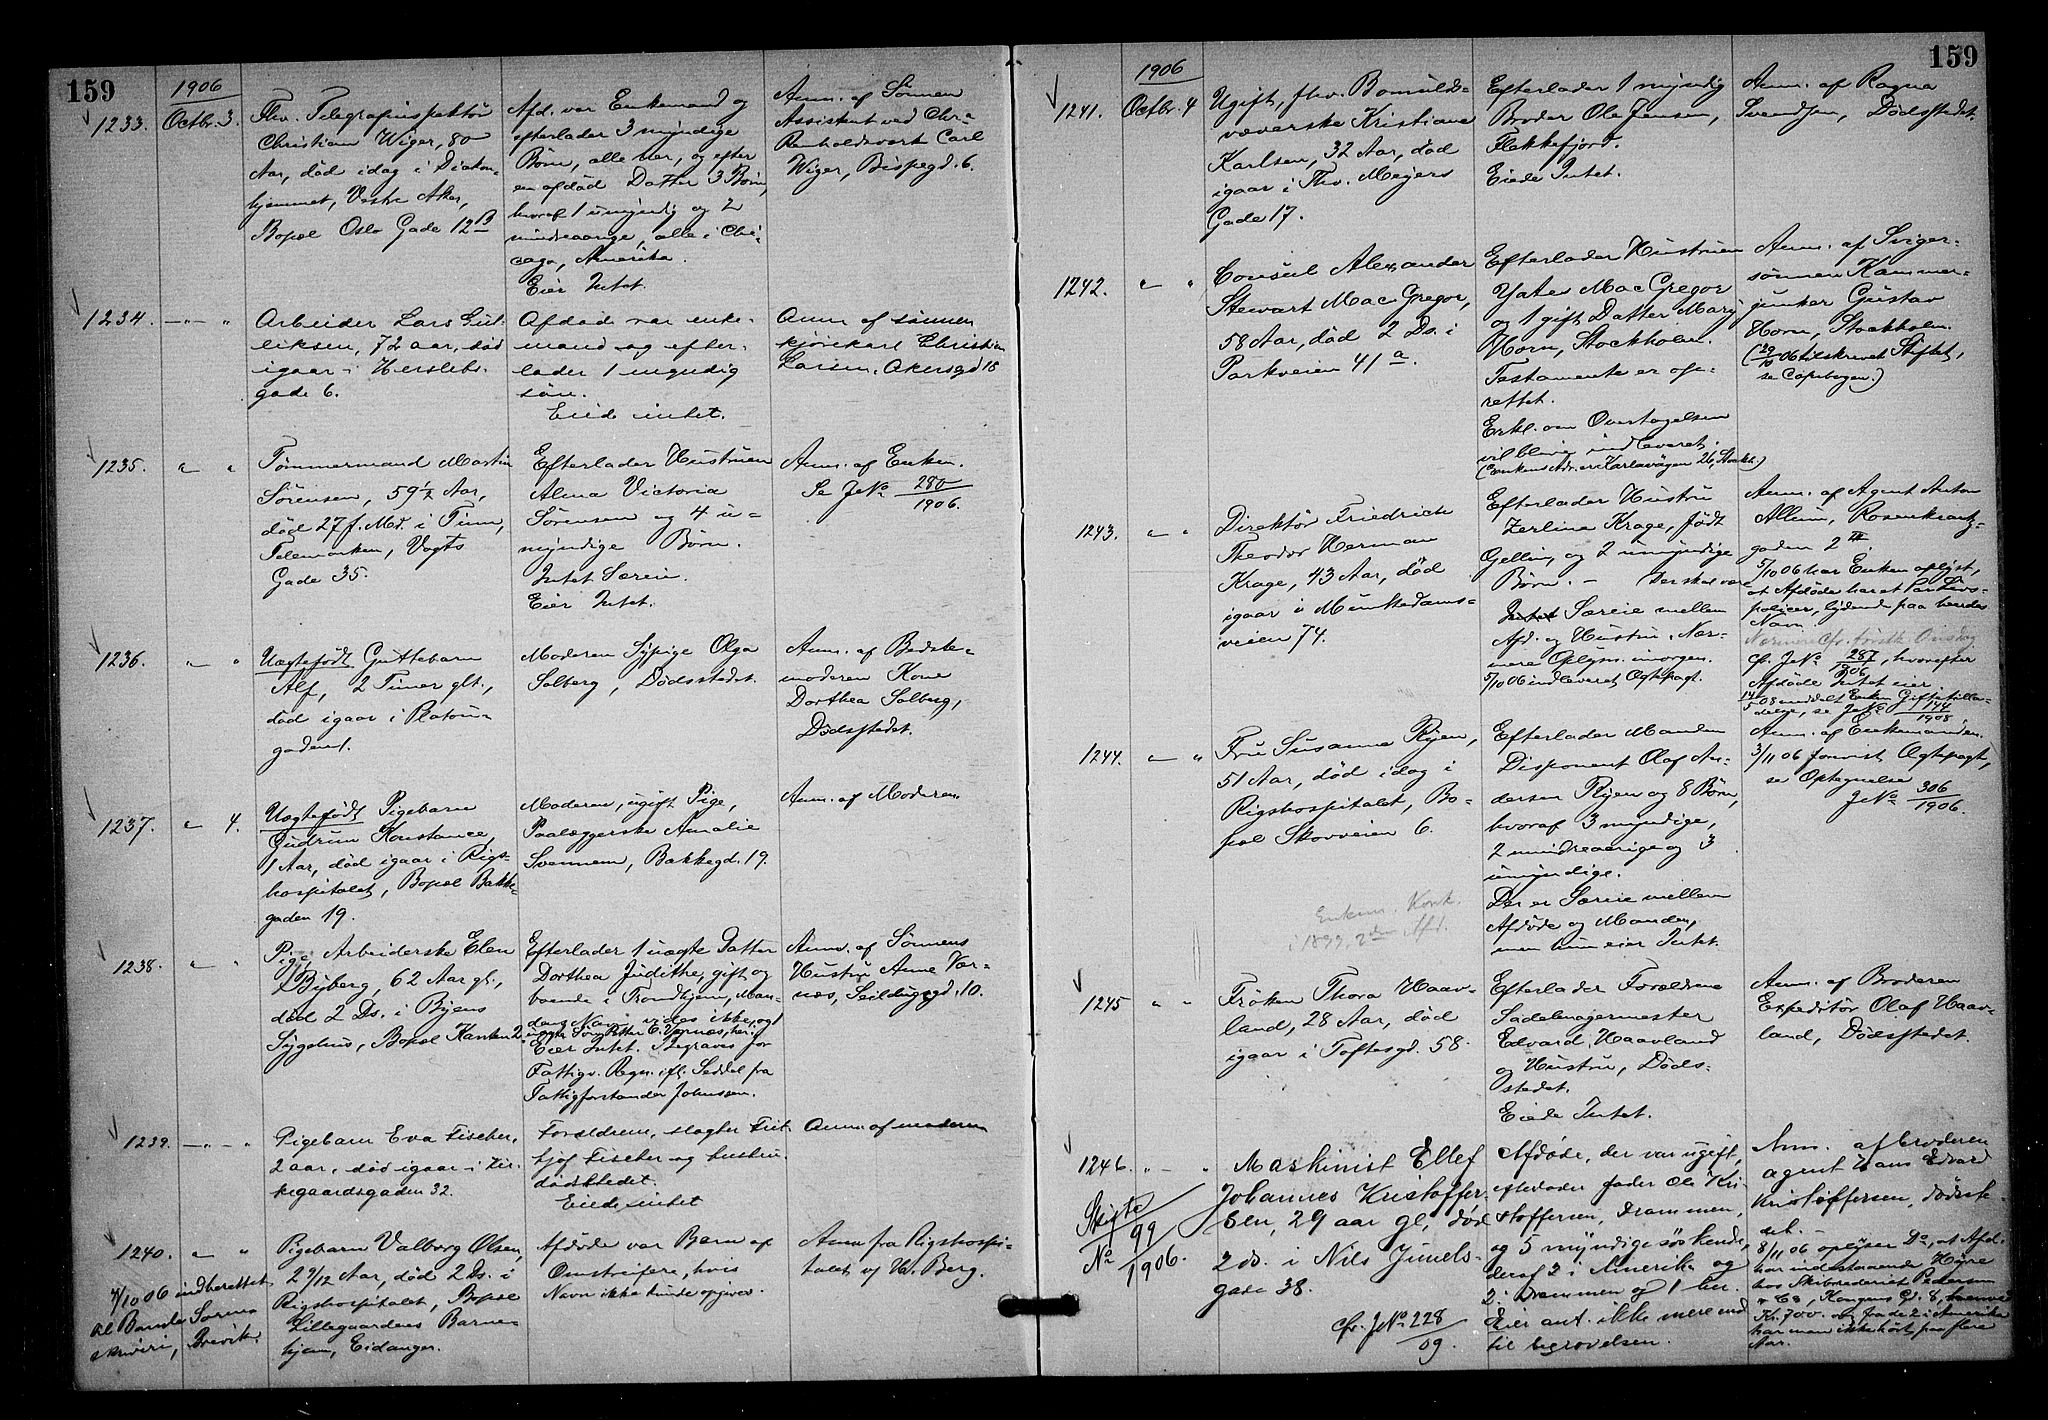 159
1906
1233.
Octbr. 3.
Fhv. Telegrafinspektør
Christian Wiger, 80
Aar, død idag i Diakon-
hjemmet, Vestre Aker,
Bopæl Oslo Gade 12 B
Afd. var Enkemand og
efterlader 3 myndige
Børn, alle her, og efter
en afdød Datter 3 Børn,
hvoraf 1 umyndig og 2
mindreaarige, alle i Chi-
cago, Amerika.
Eier Intet.
Anm. af Sønnen
Assistent ved Chr.a
Renholdsverk Carl
Wiger, Bispegd. 6.
1234.
Arbeider Lars Gul-
liksen, 72 aar, død
igaar i Herslebs-
gade 6.
Afdøde var enke-
mand og efter-
lader 1 myndig
søn.
Eiede intet.
Anm af sønnen
kjørekarl Christian
Larsen, Akersgd 18
1235.
Tømmermand Martin
Sørensen, 59 1/2 Aar,
død 27 f. Md. i Tinn,
Telemarken, Vogts
Gade 35.
Efterlader Hustruen
Alma Victoria
Sørensen og 4 u-
myndige Børn.
Intet Særeie.
Eier Intet.
Anm. af Enken.
Se J.No. 280/1906.
1236.
Uægtefødt Guttebarn
Alf, 2 Timer glt.,
død igaar i Platou-
gaden 1.
Moderen Sypige Olga
Solberg, Dødsstedet.
Anm. af Bedste-
moderen Kone
Dorthea Solberg,
Dødsstedet.
1237.
" 4.
Uægtefødt Pigebarn
Gudrun Konstance,
1 Aar, død igaar i Rigs-
hospitalet, Bopæl Bakke-
gaden 19.
Moderen, ugift Pige,
Paalæggerske Amalie
Svennem, Bakkegd. 19.
Anm. af Moderen.
1238.
Pige Arbeiderske Elen
Byberg, 62 Aar gl.,
død 2 Ds. i Byens
Sygehus, Bopæl Kanten 2.
Efterlader 1 uægte Datter
Dorthea Judithe, gift og
boende i Trondhjem, Man-
dens Navn vides ikke, og 1
uægte Søn Petter C. Vornæs, her.
Eier Intet. Begraves for
Fattigv. Regn. ifl. Seddel fra
Fattigforstander Johnssen.
Anm. af Sønnens
Hustru Anne Vor-
næs, Seildugsgd. 10.
1239.
Pigebarn Eva Fischer,
2 aar, død igaar i Kir-
kegaardsgaden 32.
Forældrene, slagter Frit-
hjof Fischer og hustru,
dødsstedet.
Eiede intet
Anm. af moderen
1240.
Pigebarn Valborg Olsen,
2 9/12 Aar, død 2 Ds. i
Rigshospitalet, Bopæl
Lillegaardens Barne-
hjem, Eidanger.
Afdøde var Barn af
Omstreifere, hvis
Navn ikke kunde opgives.
Anm. fra Rigshospi-
talet v/ Hr. Berg.
4/10 06 indberettet
til Bamble Soren-
skriveri, Brevik.
159
1906
1241.
Octbr. 4
Ugift, fhv. Bomulds-
væverske Kristiane
Karlsen, 32 Aar, død
igaar i Thv. Meyers
Gade 17.
Efterlader 1 myndig
Broder Ole Jensen,
Flekkefjord.
Eiede Intet.
Anm. af Ragna
Svendsen, Dødsstedet.
1242.
Consul Alexander
Stewart MacGregor,
58 Aar, død 2 Ds. i
Parkveien 41 a.
Efterlader Hustruen
Yates MacGregor
og 1 gift Datter Mary
Horn, Stockholm.
Testamente er op-
rettet.
Erkl. om Overtagelsen
vil blive indleveret.
(Enkens Adr. er Karlavägen 26, Stockh.)
Anm. af Sviger-
sønnen Kammer-
junker Gustav
Horn, Stockholm.
(29/10 06 tilskrevet Stiftet,
se Copibogen.)
1243.
Direktør Friedrich
Theodor Herman
Krage, 43 Aar, død
igaar i Munkedams-
veien 74.
Efterlader Hustru
Zerlina Krage, født
Gellin, og 2 umyndige
Børn. - Der skal være
Intet Særeie mellem
Afd. og Hustru. Nær-
mere Oplysn. imorgen.
5/10 06 indleveret Ægtepagt.
Anm. af Agent Anton
Allum, Rosenkrantz-
gaden 2 III.
5/10 06 har Enken oplyst,
at Afdøde har et Par Livs-
policer, lydende paa hendes
Navn.
Cfr. J.No. 287/1906, hvorefter
Afdøde Intet eier.
14/5 08 meddelt Enken Giftetilla-
delse, se J.No. 144/1908.
1244.
Fru Susanna Ryen,
51 Aar, død idag i
Rigshospitalet, Bo-
pæl Skovveien 6.
Enkem. Konk.
i 1899, 2den Afd.
Efterlader Manden
Disponent Olaf An-
dersen Ryen og 8 Børn,
hvoraf 3 myndige,
2 mindreaarige og 3
umyndige.
Der er Særeie mellem
Afdøde og Manden,
men hun eier Intet.
Anm. af Enkemanden.
3/11 06 forevist Ægtepagt,
se Optegnelse
J.No. 306/1906.
1245
Frøken Thora Haav-
land, 28 Aar, død
igaar i Toftesgd. 58.
Efterlader Forældrene
Sadelmagermester
Edvard Haavland
og Hustru, Døds-
stedet.
Eiede Intet.
Anm. af Broderen
Expeditør Olaf Haav-
land, Dødsstedet.
1246.
Skifte
No. 99/1906.
Maskinist Ellef
Johannes Kristoffer-
sen, 29 aar gl, død
2 ds. i Nils Juuels-
gade 38.
cfr. J.No. 228/09.
Afdøde, der var ugift,
efterlader fader Ole Kri-
stoffersen, Drammen,
og 5 myndige søskende,
deraf 2 i Amerika og
2 i Drammen og 1 her.
Eier ant. ikke mere end
til begravelsen.
Anm. af broderen
agent Hans Edvard
Kristoffersen, dødsste-
det.
8/11 06 oplyser Do, at Afd.
har indestaaende Hyre
hos Skibsrederiet Pedersen
& Co, Kongens Gd. 8,
Kr. 700. - i Amerika
har man ikke hørt fra i flere
Aar.